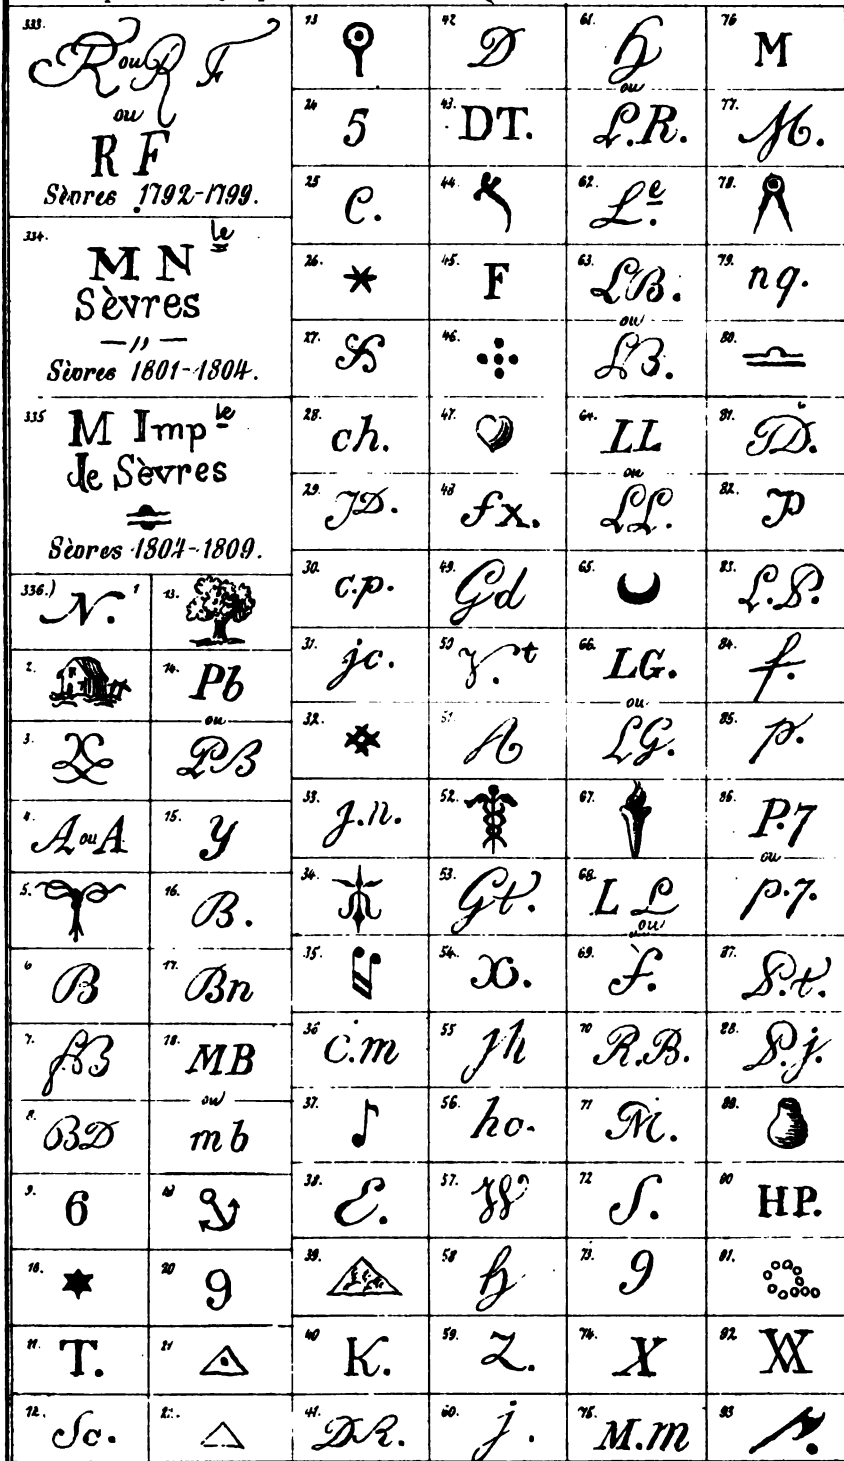 333.
R ou R F
ou
R F
Sèvres 1792-1799.
334.
M N le
Sèvres
— „ —
Sèvres 1801-1804.
335
M Imple
de Sèvres
Sèvres 1804-1809.
336.) N. 1
2.
3.
4. A ou A
5.
6 B
7. fB
8. BD
9. 6
10.
11. T.
12. Sc.
13.
14. Pb
ou
PB
15. y
16. B.
17. Bn
18. MB
ou
mb
19
20 9
21
22.
23
24 5
25 C.
26.
27.
28. ch.
29. JD.
30. c.p.
31. jc.
32.
33. j.n.
34.
35.
36 c.m
37.
38. E.
39.
40 K.
41. DR.
42 D
43. DT.
44.
45. F
46.
47.
48 fx.
49. Gd
50
51. A
52.
53. Gt.
54.
55 jh
56. ho.
57. W
58 h
59. Z.
60. j.
61. h
ou
L.R.
62. Le.
63. LB.
ou
LB.
64. LL
ou
LL.
65.
66. LG.
ou
LG.
67.
68. L L
ou
69. f.
70 R.B.
71 M.
72 S.
73. 9
74. X
75. M.m
76 M
77. M.
78.
79. nq.
80.
81. PD.
82. P
83. L.P.
84. f.
85. p.
86. P.7
ou
p.7.
87. P.t.
88. P.j.
89.
90 HP.
91.
92
93